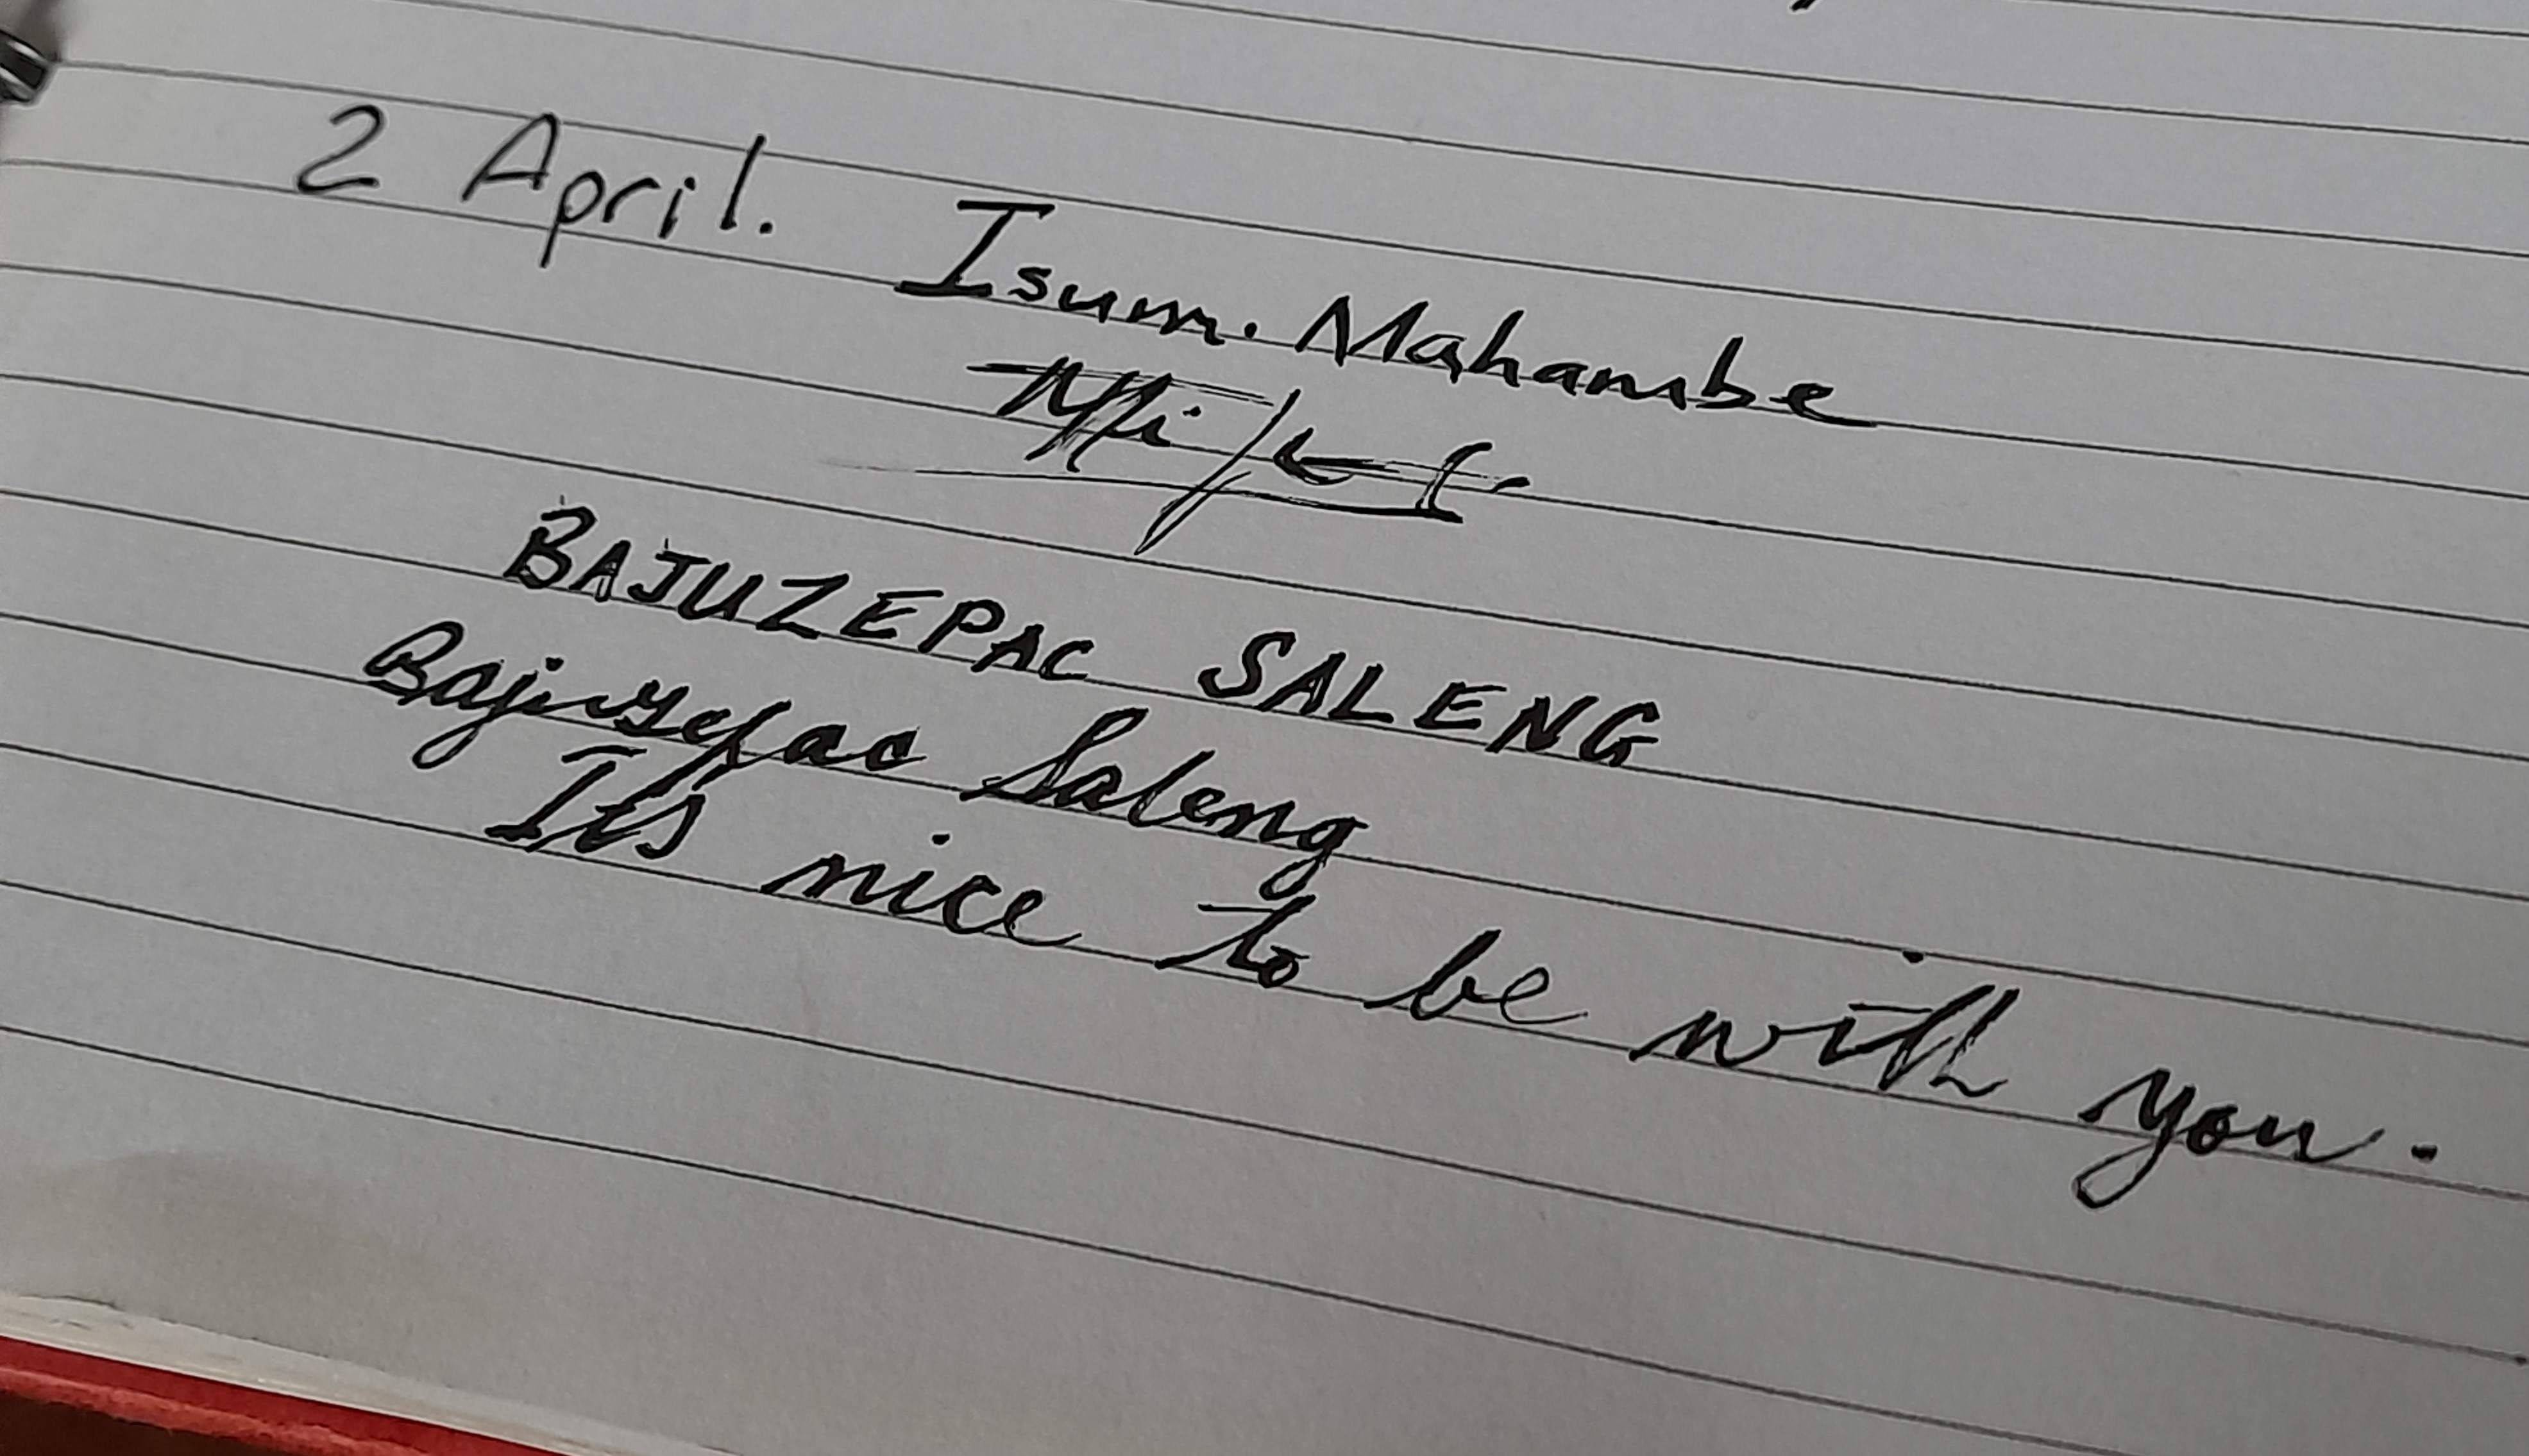 2 April. Isum. Mahambe
BAJUZEPAC SALENG
Bajuzepac Saleng
Its nice to be with you.